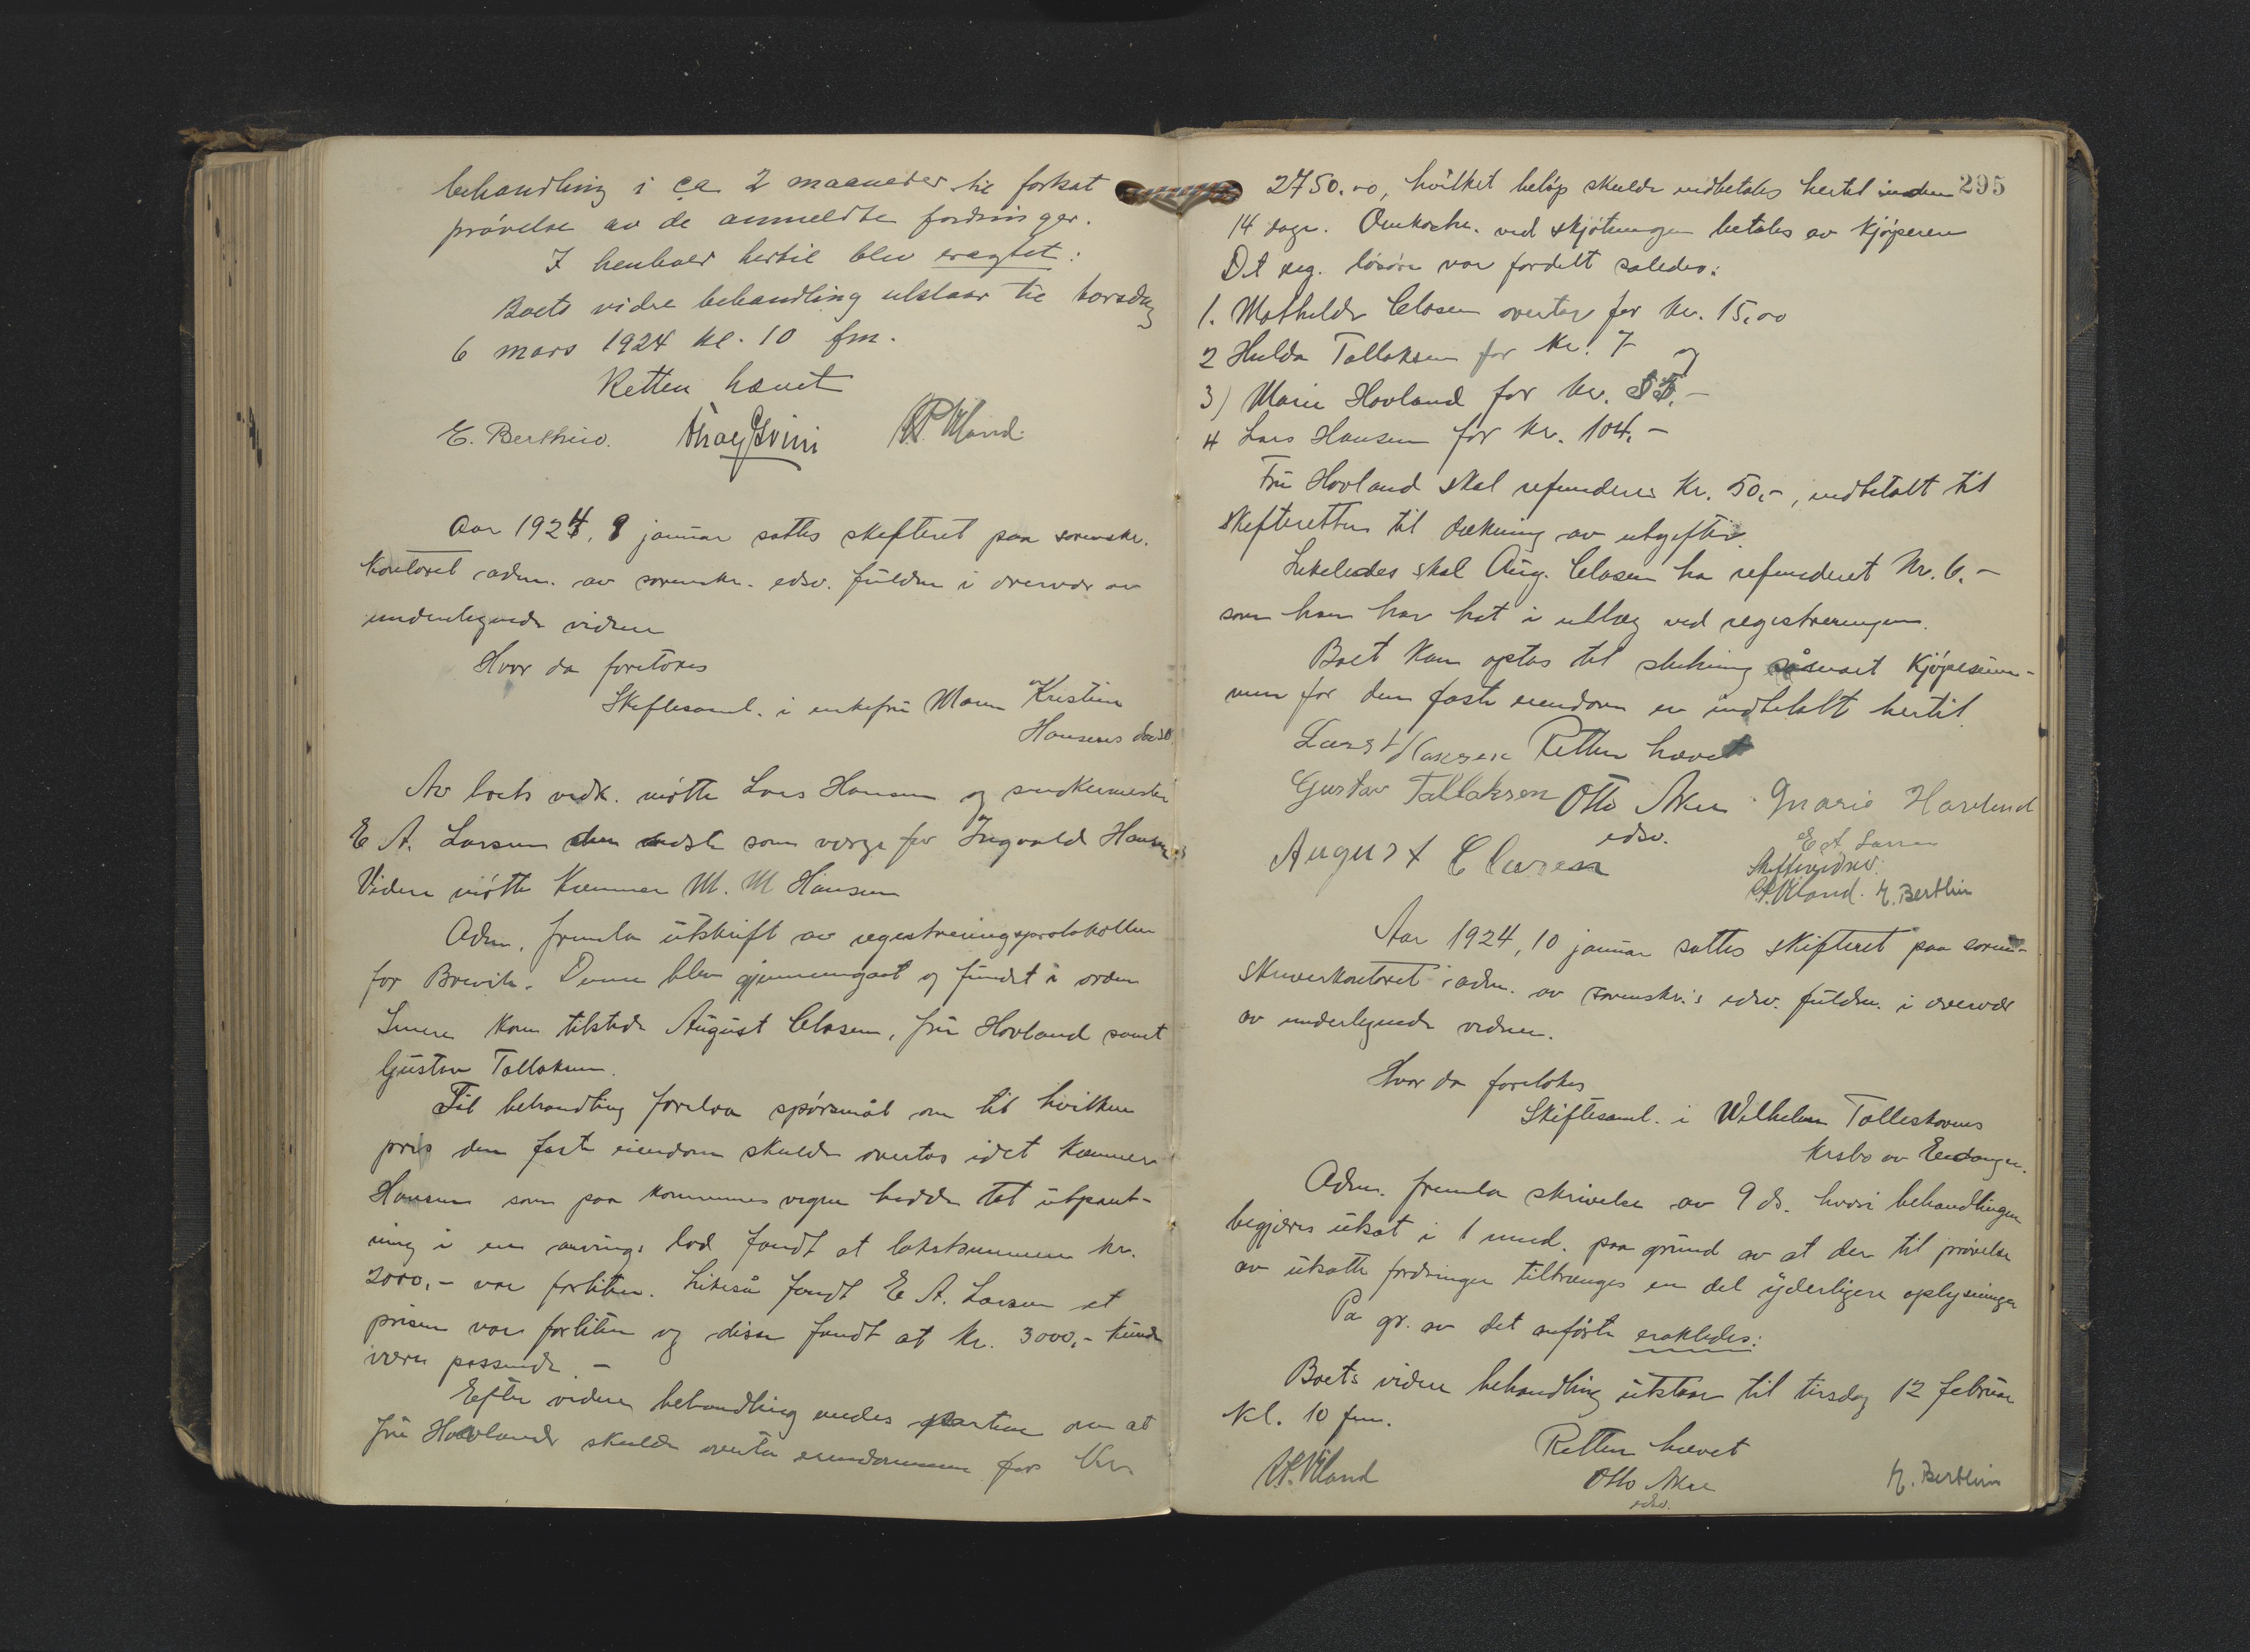 behandling i ca 2 maaneder til fortsat
prøvelse av de anmeldte fordringer.
I henhold hertil blev eragtet:
Boets vidre behandling utstaar til torsdag
6 mars 1924 kl. 10 fm.
Retten hævet
E. Berthin.
Aar 1924, 9 januar sattes skifteret paa sorenskr.
kontoret adm. av sorenskr. edsv. fuldm i overvær av
undertegnede vidner
Hvor da foretokes
Skiftesaml. i enkefru Maren Kristine
Hansens dødsbo
Av boets vedk. møtte Lars Hansen og snekkermester
E A. Larsen den sidste som verge for Ingvald Hansen
Videre møtte Kæmner M. M Hansen
Adm. fremla utskrift av registreringsprotokollen
for Brevik. Denne blev gjennemgaat og fundet i orden
Senere kom tilstede August Clasen, fru Hovland samt
Gustav Tallaksen.
Til behandling forelaa spørsmål om til hvilken
pris den faste eiendom skulde overtas idet Kæmner
Hansen som paa kommunens vegne hadde tat utpant-
ning i en arvings lod fandt at takstsummen kr.
2000,- var forliten. Likeså fandt E A. Larsen at
prisen var forliten og disse fandt at kr. 3000,- kunde
være passende. -
Efter videre behandling enedes partene om at
fru Hovland skulde overta eiendommen for kr.
295
2750.00, hvilket beløp skulde indbetales hertil inden
14 dage. Omkostn. ved skjøtningen betales av kjøperen
Det reg. løsøre var fordelt saledes:
1. Mathilde Clasen overtar for kr. 15,00
2 Hulda Tallaksen for kr. 7 og
3) Marie Hovland for kr.
4 Lars Hansen for kr. 104,-
Fru Hovland skal refunderes kr. 50,-, indbetalt til
skifteretten til dækning av utgifter.
Likeledes skal Aug. Clasen ha refunderet kr. 6.-
som han har hat i utlæg ved registreringen.
Boet kan optas til slutning såsnart kjøpesum-
men for den faste eiendom er indbetalt hertil.
Lars Hansen Retten hævet
Gustav Tallaksen Otto Aker Marie Havland
edsv.
August Clasen
E A Larsen
Skiftevidner:
E. Berthin
Aar 1924, 10 januar sattes skifteret paa soren-
skriverkontoret adm. av sorenskr.'s edsv. fuldm. i overvær
av undertegnede vidner.
Hvor da foretokes
Skiftesaml. i Wilhelm Tolleskovens
krsbo av Eidanger.
Adm. fremla skrivelse av 9 ds. hvori behandlingen
begjæres utsat i 1 mned. paa grund av at der til prøvelse
av utsatte fordringer tiltrænges en del yderligere oplysninger
Pa gr. av det anførte eraktedes:
Boets videre behandling utstaar til tirsdag 12 februar
kl. 10 fm.
Retten hævet
Otto Aker
edsv.
E. Berthin